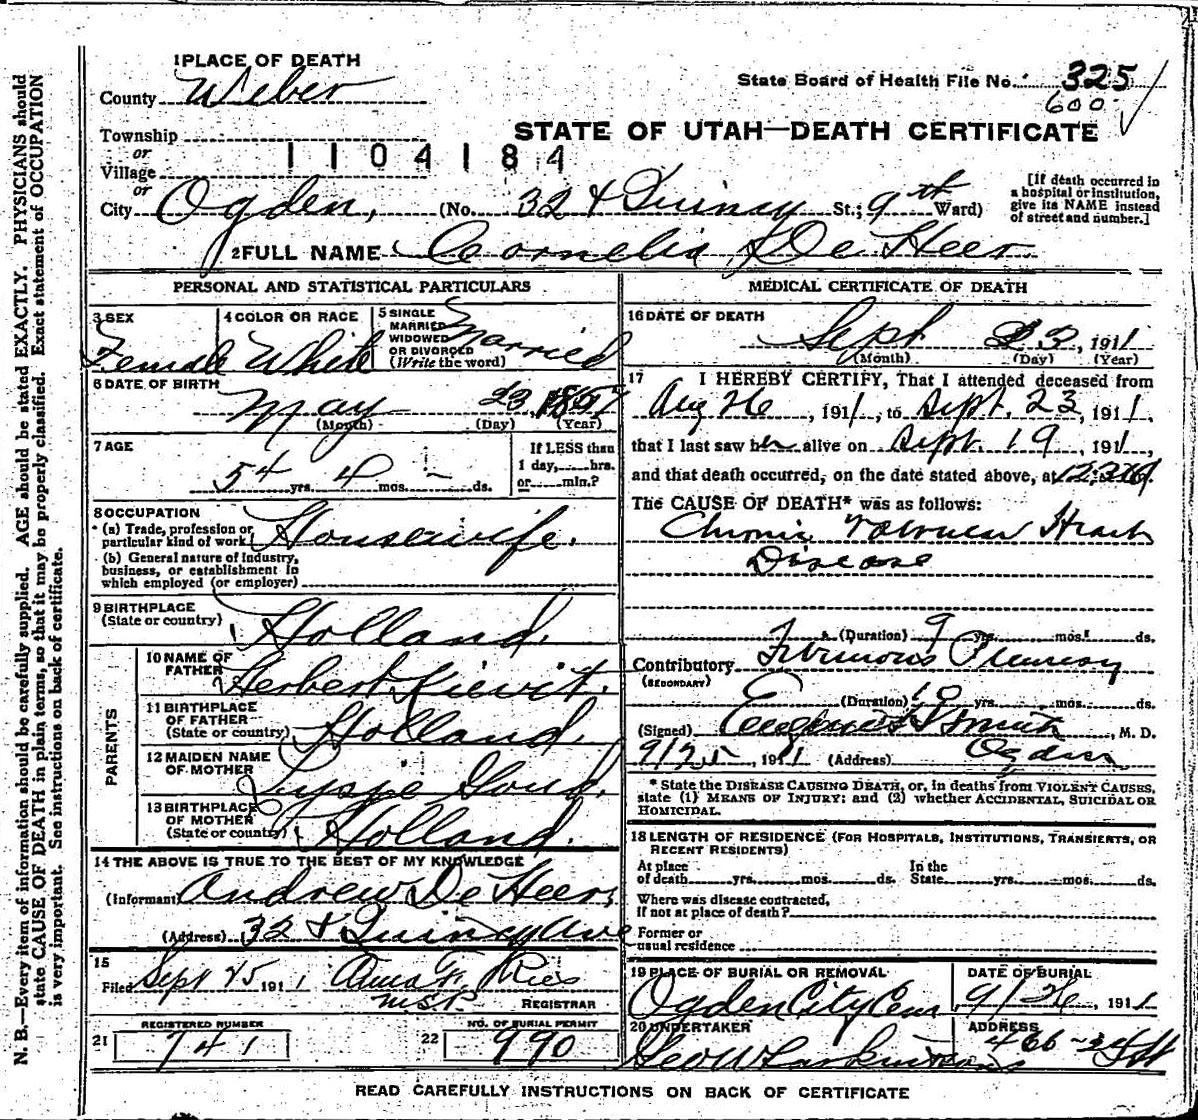 1 PLACE OF DEATH
County Weber
State Board of Health File No. 325
600
Township
or
STATE OF UTAH—DEATH CERTIFICATE
Village
1104184
or
City Ogden, (No. 32 & Quincy St.; 9th Ward)
[If death occurred in a hospital or institution, give its NAME instead of street and number.]
2 FULL NAME Cornelia De Heer
PERSONAL AND STATISTICAL PARTICULARS
3 SEX
Female
4 COLOR OR RACE
White
5 SINGLE
MARRIED
WIDOWED
OR DIVORCED
(Write the word)
Married
6 DATE OF BIRTH
May 23, 1857
(Month) (Day) (Year)
7 AGE
54 yrs. 4 mos. - ds.
If LESS than
1 day, hrs.
or min.?
8 OCCUPATION
(a) Trade, profession or
particular kind of work Housewife.
(b) General nature of industry,
business, or establishment in
which employed (or employer)
9 BIRTHPLACE
(State or country) Holland.
PARENTS
10 NAME OF
FATHER Herbert Kievit.
11 BIRTHPLACE
OF FATHER
(State or country) Holland.
12 MAIDEN NAME
OF MOTHER
13 BIRTHPLACE
OF MOTHER
(State or country) Holland.
14 THE ABOVE IS TRUE TO THE BEST OF MY KNOWLEDGE
(Informant) Andrew De Heer,
(Address) 32 & Quincy Ave
15
Filed Sept 25 1911 Anna F. Ries
REGISTRAR
21 REGISTERED NUMBER
741
22 NO. OF BURIAL PERMIT
990
MEDICAL CERTIFICATE OF DEATH
16 DATE OF DEATH
Sept 23, 1911
(Month) (Day) (Year)
17 I HEREBY CERTIFY, That I attended deceased from
Aug 26, 1911, to Sept. 23, 1911,
that I last saw her alive on Sept. 19, 1911,
and that death occurred, on the date stated above, at
The CAUSE OF DEATH* was as follows:
Chronic Valvular Heart
Disease
(Duration) 9 yrs. mos. ds.
Contributory Fibrinous Pleurisy
(SECONDARY)
(Duration) 10 yrs. mos. ds.
(Signed) Smith, M. D.
9/25, 1911 (Address) Ogden
* State the DISEASE CAUSING DEATH, or, in deaths from VIOLENT CAUSES,
state (1) MEANS OF INJURY; and (2) whether ACCIDENTAL, SUICIDAL OR
HOMICIDAL.
18 LENGTH OF RESIDENCE (FOR HOSPITALS, INSTITUTIONS, TRANSIENTS, OR
RECENT RESIDENTS)
At place
of death yrs. mos. ds.
In the
State yrs. mos. ds.
Where was disease contracted,
if not at place of death?
Former or
usual residence
19 PLACE OF BURIAL OR REMOVAL
Ogden City Cem
DATE OF BURIAL
9/26, 1911
20 UNDERTAKER
Geo W Larkin & Sons
ADDRESS
466 - 24 St
READ CAREFULLY INSTRUCTIONS ON BACK OF CERTIFICATE
N. B.—Every item of information should be carefully supplied. AGE should be stated EXACTLY. PHYSICIANS should
state CAUSE OF DEATH in plain terms, so that it may be properly classified. Exact statement of OCCUPATION
is very important. See instructions on back of certificate.